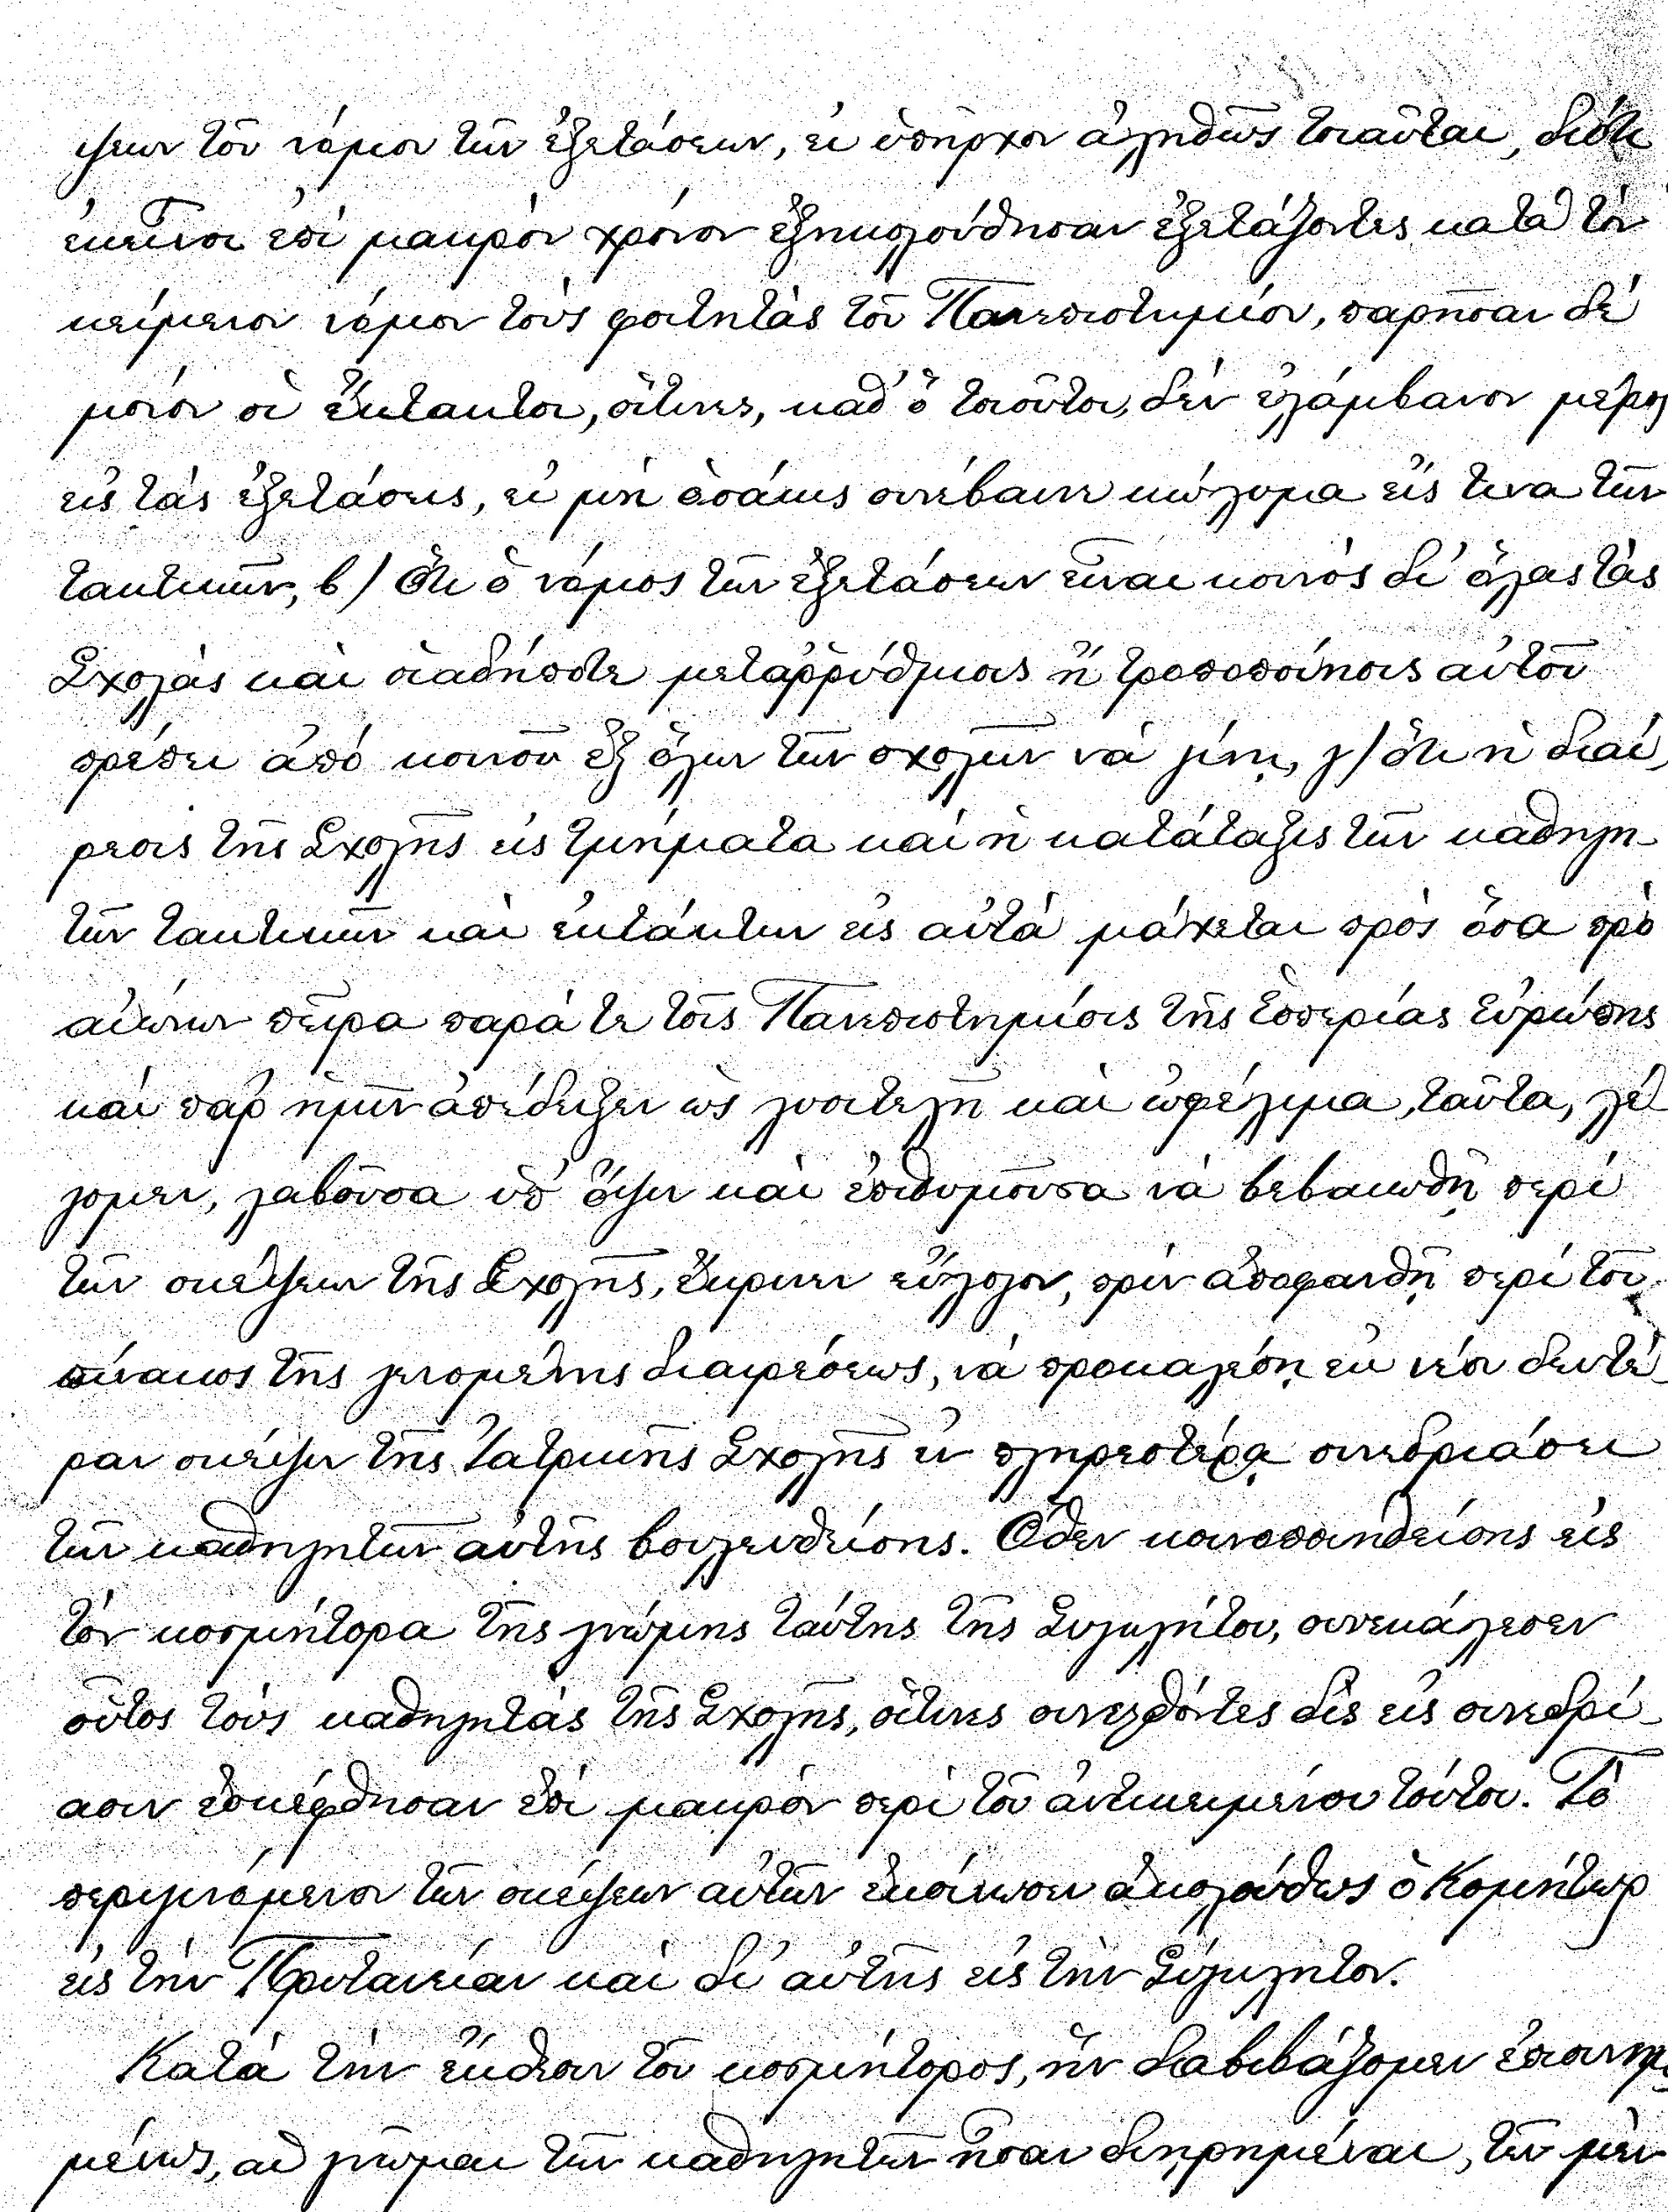 ψεων τοῦ νόμου τῶν ἐξετάσεων, εἰ ὑπῆρχον ἀληθῶς τοιαῦται, διότι
ἐκεῖνοι ἐπὶ μακρὸν χρόνον ἐξηκολούθησαν ἐξετάζοντες κατὰ τὸν
κείμενον νόμον τοὺς φοιτητὰς τοῦ Πανεπιστημίου, παρῆσαν δὲ
μόνον οἱ ἔκτακτοι, οἵτινες, καθ' ὃ τοιοῦτοι, δὲν ἐλάμβανον μέρος
εἰς τὰς ἐξετάσεις, εἰ μὴ ὁσάκις συνέβαινε κώλυμα εἴς τινα τῶν
τακτικῶν, β) ὅτι ὁ νόμος τῶν ἐξετάσεων εἶναι κοινὸς δι' ὅλας τὰς
Σχολὰς καὶ οἱαδήποτε μεταῤῥύθμισις ἢ τροποποίησις αὐτοῦ
πρέπει ἀπὸ κοινοῦ ἐξ ὅλων τῶν σχολῶν νὰ γίνῃ, γ) ὅτι ἡ διαί-
ρεσις τῆς Σχολῆς εἰς τμήματα καὶ ἡ κατάταξις τῶν καθηγη-
τῶν τακτικῶν καὶ ἐκτάκτων εἰς αὐτὰ μάχεται πρὸς ὅσα πρὸ
αἰώνων πεῖρα παρά τε τοῖς Πανεπιστημίοις τῆς Ἑσπερίας Εὐρώπης
καὶ παρ' ἡμῖν ἀπέδειξεν ὡς λυσιτελῆ καὶ ὠφέλιμα, ταῦτα, λέ-
γομεν, λαβοῦσα ὑπ' ὄψιν καὶ ἐπιθυμοῦσα νὰ βεβαιωθῇ περὶ
τῶν σκέψεων τῆς Σχολῆς, ἔκρινεν εὔλογον, πρὶν ἀποφανθῇ περὶ τοῦ
πίνακος τῆς γενομένης διαιρέσεως, νὰ προκαλέσῃ ἐκ νέου δευτέ-
ραν σκέψιν τῆς Ἰατρικῆς Σχολῆς ἐν πληρεστέρᾳ συνεδριάσει
τῶν καθηγητῶν αὐτῆς βουλευθείσης. Ὅθεν κοινοποιηθείσης εἰς
τὸν κοσμήτορα τῆς γνώμης ταύτης τῆς Συγκλήτου, συνεκάλεσεν
οὗτος τοὺς καθηγητὰς τῆς Σχολῆς, οἵτινες συνελθόντες δὶς εἰς συνεδρί-
ασιν ἐσκέφθησαν ἐπὶ μακρὸν περὶ τοῦ ἀντικειμένου τούτου. Τὸ
περιγινόμενον τῶν σκέψεων αὐτῶν ἐκοίνωσεν ἀκολούθως ὁ Κοσμήτωρ
εἰς τὴν Πρυτανείαν καὶ δι' αὐτῆς εἰς τὴν Σύγκλητον.
Κατὰ τὴν ἔκθεσιν τοῦ κοσμήτορος, ἣν διαβιβάζομεν ἐπισυνημ-
μένως, αἱ γνῶμαι τῶν καθηγητῶν ἦσαν διῃρημέναι, τῶν μὲν